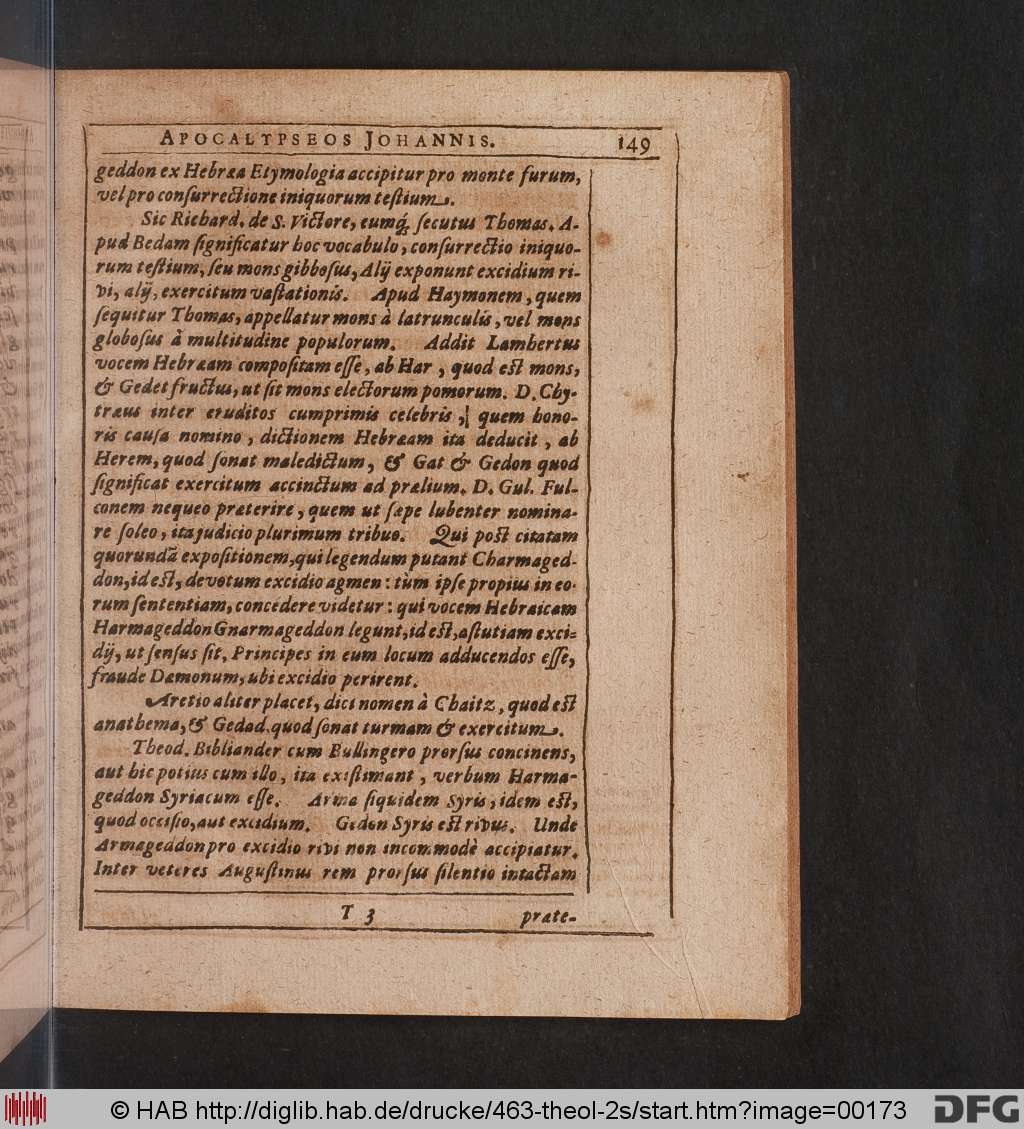 APOCALYPSEOS JOHANNIS. 149
geddon ex Hebræa Etymologia accipitur pro monte furum,
vel pro conſurrectione iniquorum teſtium.
Sic Richard. de S. Victore, eumq́; ſecutus Thomas. A-
pud Bedam ſignificatur hoc vocabulo, conſurrectio iniquo-
rum teſtium, ſeu mons gibboſus, Alij exponunt excidium ri-
vi, alij, exercitum vaſtationis. Apud Haymonem, quem
ſequitur Thomas, appellatur mons à latrunculis, vel mons
globoſus à multitudine populorum. Addit Lambertus
vocem Hebræam compoſitam eſſe, ab Har, quod est mons,
& Gedet fructus, ut ſit mons electorum pomorum. D. Chy-
træus inter eruditos cumprimis celebris, quem hono-
ris cauſa nomino, dictionem Hebræam ita deducit, ab
Herem, quod ſonat maledictum, & Gat & Gedon quod
ſignificat exercitum accinctum ad prælium. D. Gul. Ful-
conem nequeo præterire, quem ut ſæpe lubenter nomina-
re ſoleo, ita judicio plurimum tribuo. Qui post citatam
quorundã expoſitionem, qui legendum putant Charmaged-
don, id est, devotum excidio agmen: tùm ipſe propius in eo-
rum ſententiam, concedere videtur: qui vocem Hebraicam
Harmageddon Gnarmageddon legunt, id est, aſtutiam exci-
dij, ut ſenſus ſit, Principes in eum locum adducendos eſſe,
fraude Dæmonum, ubi excidio perirent.
Aretio aliter placet, dici nomen à Chaitz, quod est
anathema, & Gedad. quod ſonat turmam & exercitum.
Theod. Bibliander cum Bullingero prorſus concinens,
aut hic potius cum illo, ita existimant, verbum Harma-
geddon Syriacum eſſe. Arma ſiquidem Syris, idem est,
quod occiſio, aut excidium. Gedon Syris est rivus. Unde
Armageddon pro excidio rivi non incommodè accipiatur.
Inter veteres Auguſtinus rem prorſus ſilentio intactam
T 3 præte-
© HAB http://diglib.hab.de/drucke/463-theol-2s/start.htm?image=00173 DFG